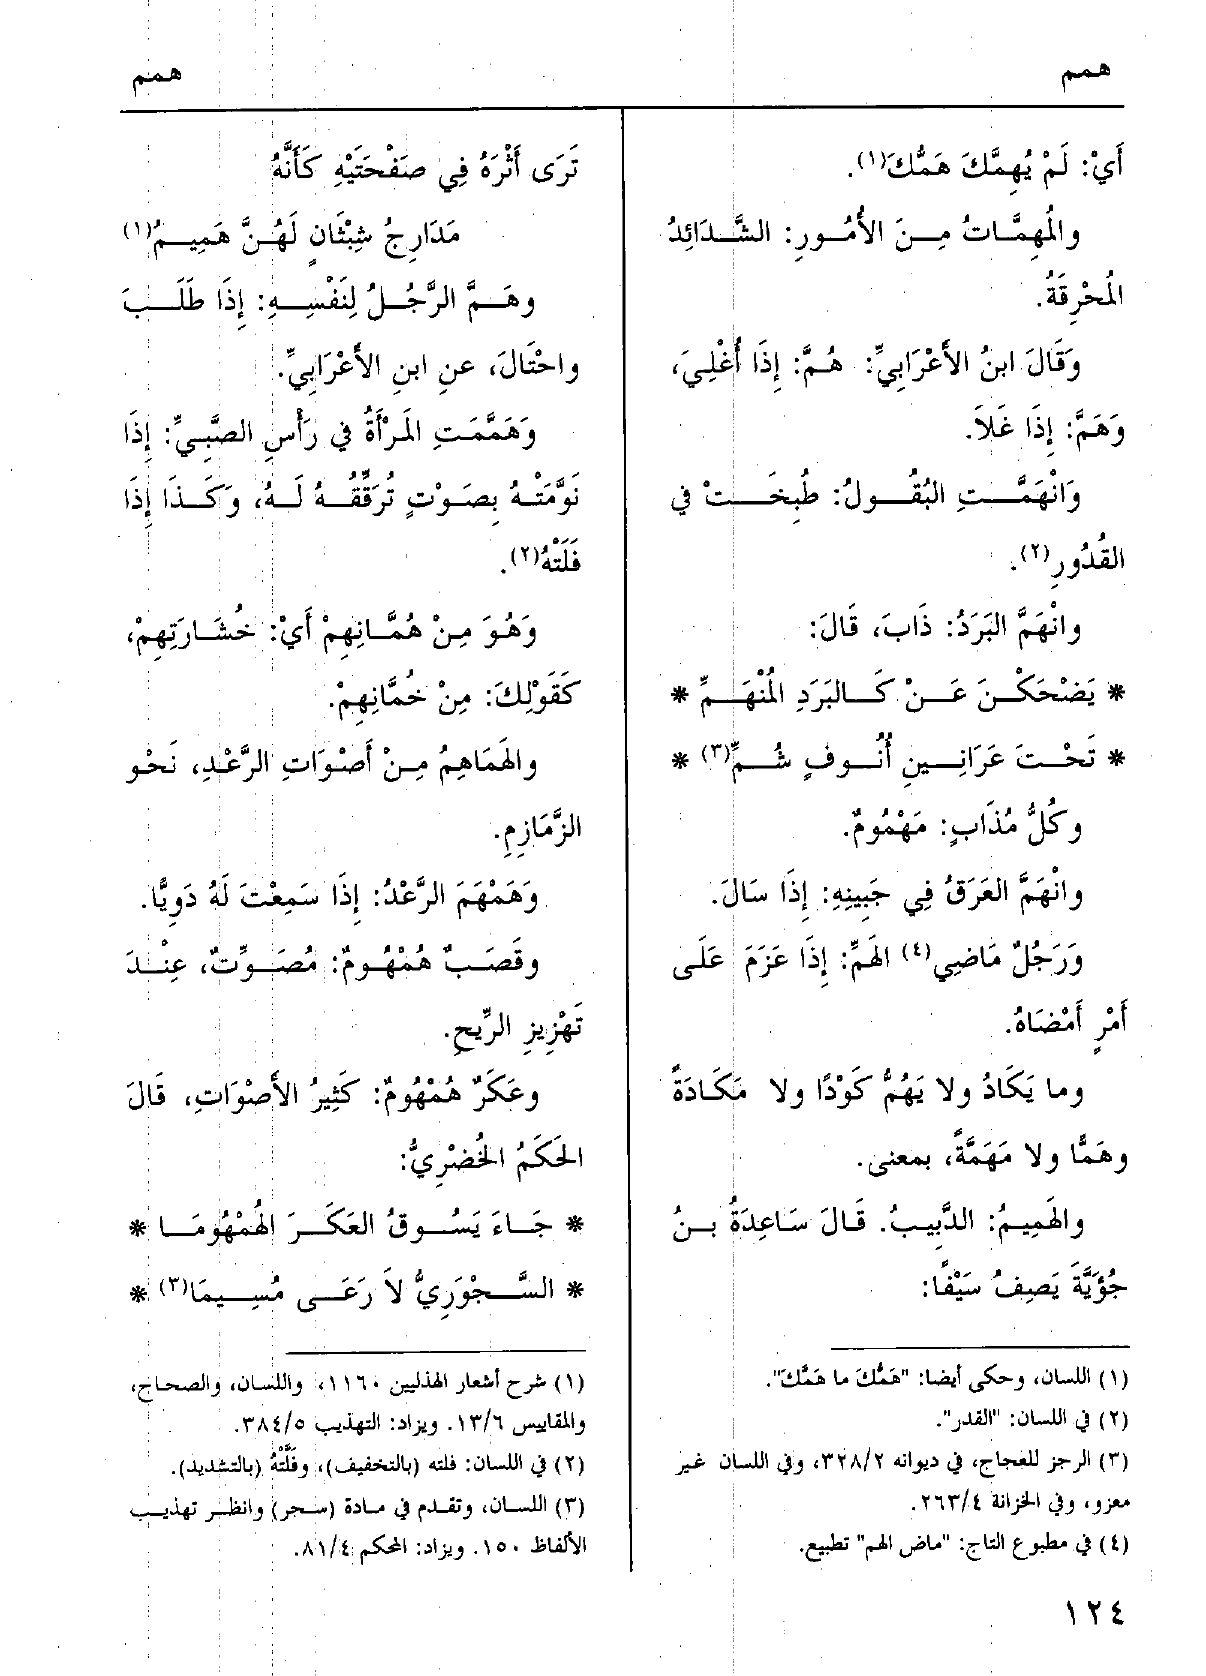 همم
همم
أَيْ: لَمْ يُهِمَّكَ هَمُّكَ(١).
والمُهِمَّاتُ مِنَ الأُمُورِ: الشَّدَائِدُ
المُحْرِقَةُ.
وَقَالَ ابنُ الأَعْرَابِيِّ: هُمَّ: إِذَا أُغْلِيَ،
وَهَمَّ: إِذَا غَلاَ.
وَانْهَمَّتِ البُقُولُ: طُبِخَتْ في
القُدُورِ(٢).
وانْهَمَّ البَرَدُ: ذَابَ، قَالَ:
* يَضْحَكْنَ عَنْ كَالبَرَدِ المُنْهَمِّ *
* تَحْتَ عَرَانِينِ أُنُوفٍ شُمِّ(٣) *
وكُلُّ مُذَابٍ: مَهْمُومٌ.
وانْهَمَّ العَرَقُ فِي جَبِينِهِ: إِذَا سَالَ.
ورَجُلٌ مَاضِي(٤) الهَمِّ: إِذَا عَزَمَ عَلَى
أَمْرٍ أَمْضَاهُ.
وما يَكَادُ ولا يَهُمُّ كَوْدًا ولا مَكَادَةً
وهَمًّا ولا مَهَمَّةً، بمعنى.
والهَمِيمُ: الدَّبِيبُ. قَالَ سَاعِدَةُ بنُ
جُؤَيَّةَ يَصِفُ سَيْفًا:
(١) اللسان، وحكى أيضا: "هَمُّكَ ما هَمَّكَ".
(٢) في اللسان: "القدر".
(٣) الرجز للعجاج، في ديوانه ٣٢٨/٢، وفي اللسان غير
معزو، وفي الخزانة ٢٦٣/٤.
(٤) في مطبوع التاج: "ماض الهم" تطبيع.
تَرَى أَثْرَهُ فِي صَفْحَتَيْهِ كَأَنَّهُ
مَدَارِجُ شِبْثَانٍ لَهُنَّ هَمِيمُ(١)
وهَمَّ الرَّجُلُ لِنَفْسِهِ: إِذَا طَلَبَ
واحْتَالَ، عنِ ابنِ الأَعْرَابِيِّ.
وَهَمَّمَتِ المَرْأَةُ في رَأْسِ الصَّبِيِّ: إِذَا
نَوَّمَتْهُ بِصَوْتٍ تُرَقِّقُهُ لَهُ، وَكَذَا إِذَا
فَلَتْهُ(٢).
وَهُوَ مِنْ هُمَّانِهِمْ أَيْ: خُشَارَتِهِمْ،
كَقَوْلِكَ: مِنْ خُمَّانِهِمْ.
والهَمَاهِمُ مِنْ أَصْوَاتِ الرَّعْدِ، نَحْو
الزَّمَازِمِ.
وَهَمْهَمَ الرَّعْدُ: إِذَا سَمِعْتَ لَهُ دَوِيًّا.
وقَصَبٌ هُمْهُومٌ: مُصَوِّتٌ، عِنْدَ
تَهْزِيزِ الرِّيحِ.
وعَكَرٌ هُمْهُومٌ: كَثِيرُ الأَصْوَاتِ، قَالَ
الحَكَمُ الخُضْرِيُّ:
* جَاءَ يَسُوقُ العَكَرَ الهُمْهُومَا *
* السَّجْوَرِيُّ لاَ رَعَى مُسِيمَا(٣) *
(١) شرح أشعار الهذليين ١١٦٠، واللسان، والصحاح،
والمقاييس ١٣/٦. ويزاد: التهذيب ٣٨٤/٥.
(٢) في اللسان: فلته (بالتخفيف)، وفَلَّتْهُ (بالتشديد).
(٣) اللسان، وتقدم في مادة (سجر) وانظر تهذيب
الألفاظ ١٥٠. ويزاد: المحكم ٨١/٤.
١٢٤